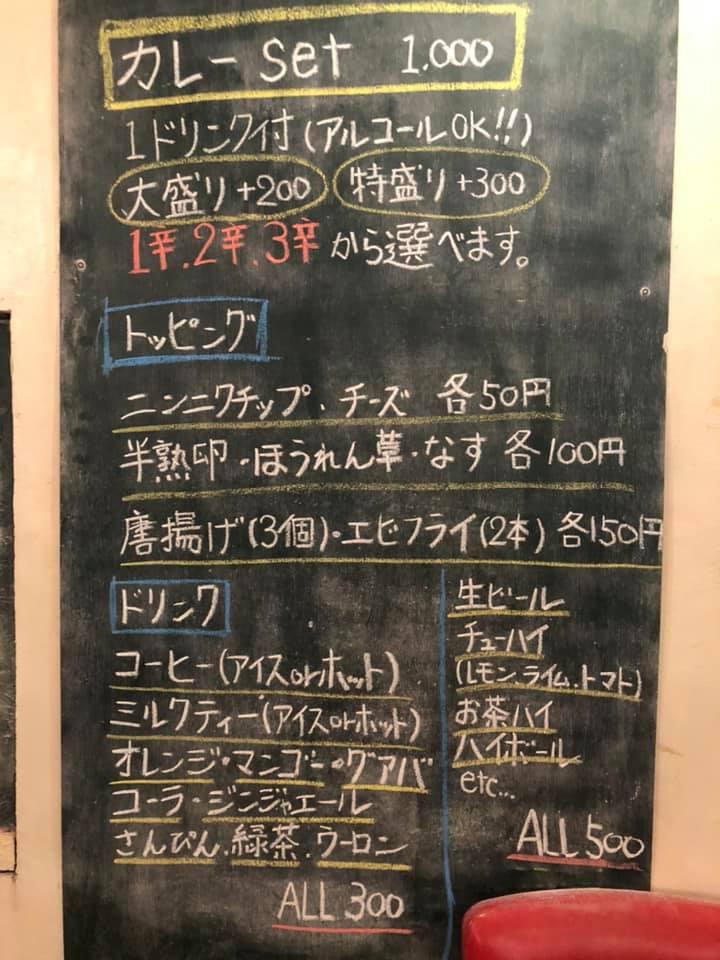 カレーset 1.000
1ドリンク付(アルコールOK!!)
大盛り+200 特盛り+300
1辛.2辛.3辛から選べます。
トッピング
ニンニクチップ、チーズ 各50円
半熟卵・ほうれん草・なす 各100円
唐揚げ(3個)・エビフライ(2本) 各150円
ドリンク
コーヒー(アイスorホット)
ミルクティー(アイスorホット)
オレンジ・マンゴー・グァバ
コーラ・ジンジャエール
さんぴん.緑茶.ウーロン
ALL 300
生ビール
チューハイ
(レモン.ライム.トマト)
お茶ハイ
ハイボール
etc...
ALL 500